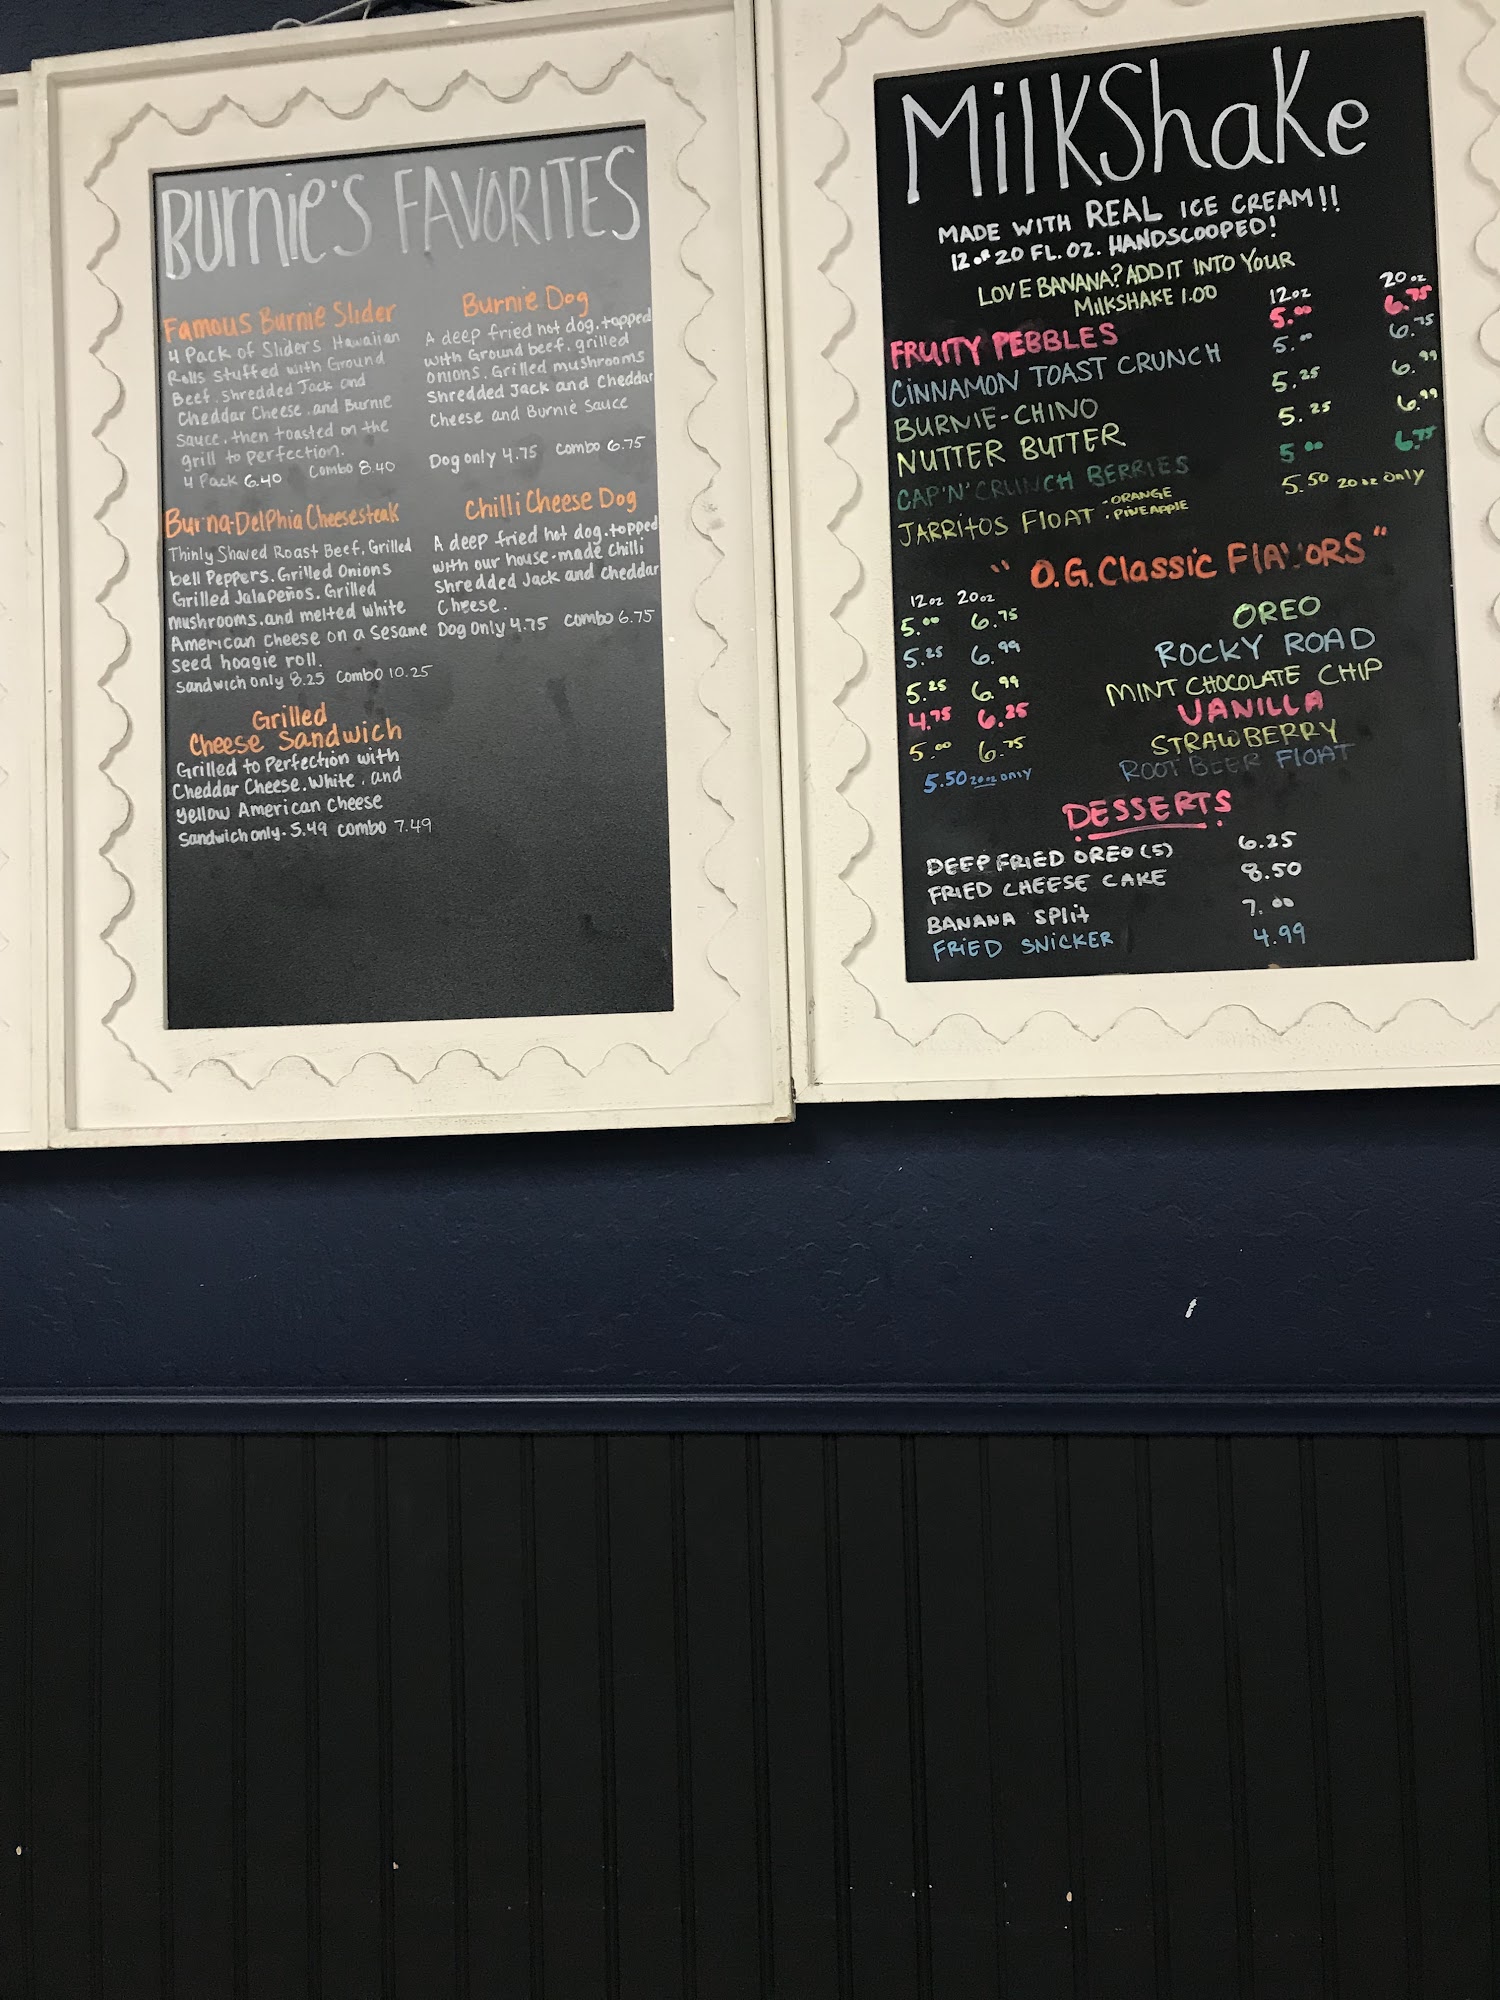 Burnie's FAVORITES
Famous Burnie Slider
4 Pack of Sliders. Hawaiian
Rolls stuffed with Ground
Beef. shredded Jack and
Cheddar Cheese. and Burnie
Sauce. then toasted on the
grill to perfection.
4 Pack 6.40 Combo 8.40
Burna-Delphia Cheesesteak
Thinly Shaved Roast Beef. Grilled
bell Peppers. Grilled Onions
Grilled Jalapeños. Grilled
mushrooms. and melted white
American cheese on a Sesame
seed hoagie roll.
Sandwich only 8.25 Combo 10.25
Grilled
Cheese Sandwich
Grilled to Perfection with
Cheddar Cheese. White. and
yellow American Cheese
Sandwich only. 5.49 combo 7.49
Burnie Dog
A deep fried hot dog. topped
with Ground beef. grilled
onions. Grilled mushrooms
Shredded Jack and Cheddar
Cheese and Burnie Sauce
Dog only 4.75 Combo 6.75
Chilli Cheese Dog
A deep fried hot dog. topped
with our house-made Chilli
Shredded Jack and Cheddar
Cheese.
Dog Only 4.75 combo 6.75
MilkShake
MADE WITH REAL ICE CREAM!!
12 or 20 FL. OZ. HANDSCOOPED!
LOVE BANANA? ADD IT INTO YOUR
MILKSHAKE 1.00
12oz 20oz
FRUITY PEBBLES 5.00 6.75
CINNAMON TOAST CRUNCH 5.00 6.75
BURNIE-CHINO 5.25 6.99
NUTTER BUTTER 5.25 6.99
CAP'N'CRUNCH BERRIES 5.00 6.75
JARRITOS FLOAT - ORANGE - PINEAPPLE 5.50 20oz only
"O.G. Classic FLAVORS"
12oz 20oz
5.00 6.75 OREO
5.25 6.99 ROCKY ROAD
5.25 6.99 MINT CHOCOLATE CHIP
4.75 6.25 VANILLA
5.00 6.75 STRAWBERRY
5.50 20oz only ROOT BEER FLOAT
DESSERTS
DEEP FRIED OREO (5) 6.25
FRIED CHEESE CAKE 8.50
BANANA SPLIT 7.00
FRIED SNICKER 4.99